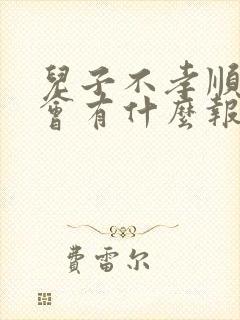 兒子不孝順
會有什麼報
費雷尔